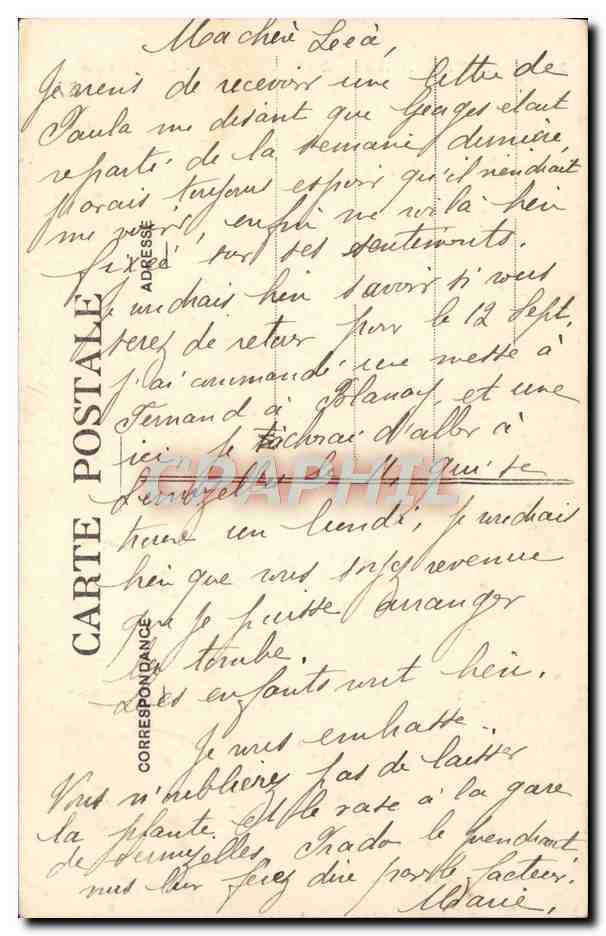 Ma chère Léa,
Je viens de recevoir une lettre de
Paula me disant que Georges était
reparti de la semaine dernière,
j'avais toujours espoir qu'il viendrait
me voir, enfin me voilà bien
fixée sur ses sentiments.
Je voudrais bien savoir si vous
serez de retour pour le 12 Sept.
J'ai commandé une messe à
Fernand à et une
ici. Je tâcherai d'aller à
Vermelles le qui se
trouve un lundi, je voudrais
bien que vous soyez revenue
que je puisse arranger
la tombe.
Les enfants vont bien.
Je vous embrasse.
Vous n'oublierez pas de laisser
la plante et le vase à la gare
de le prendrait
vous leur ferez dire par le facteur.
Marie.
CARTE POSTALE
CORRESPONDANCE
ADRESSE
CPAPHIL